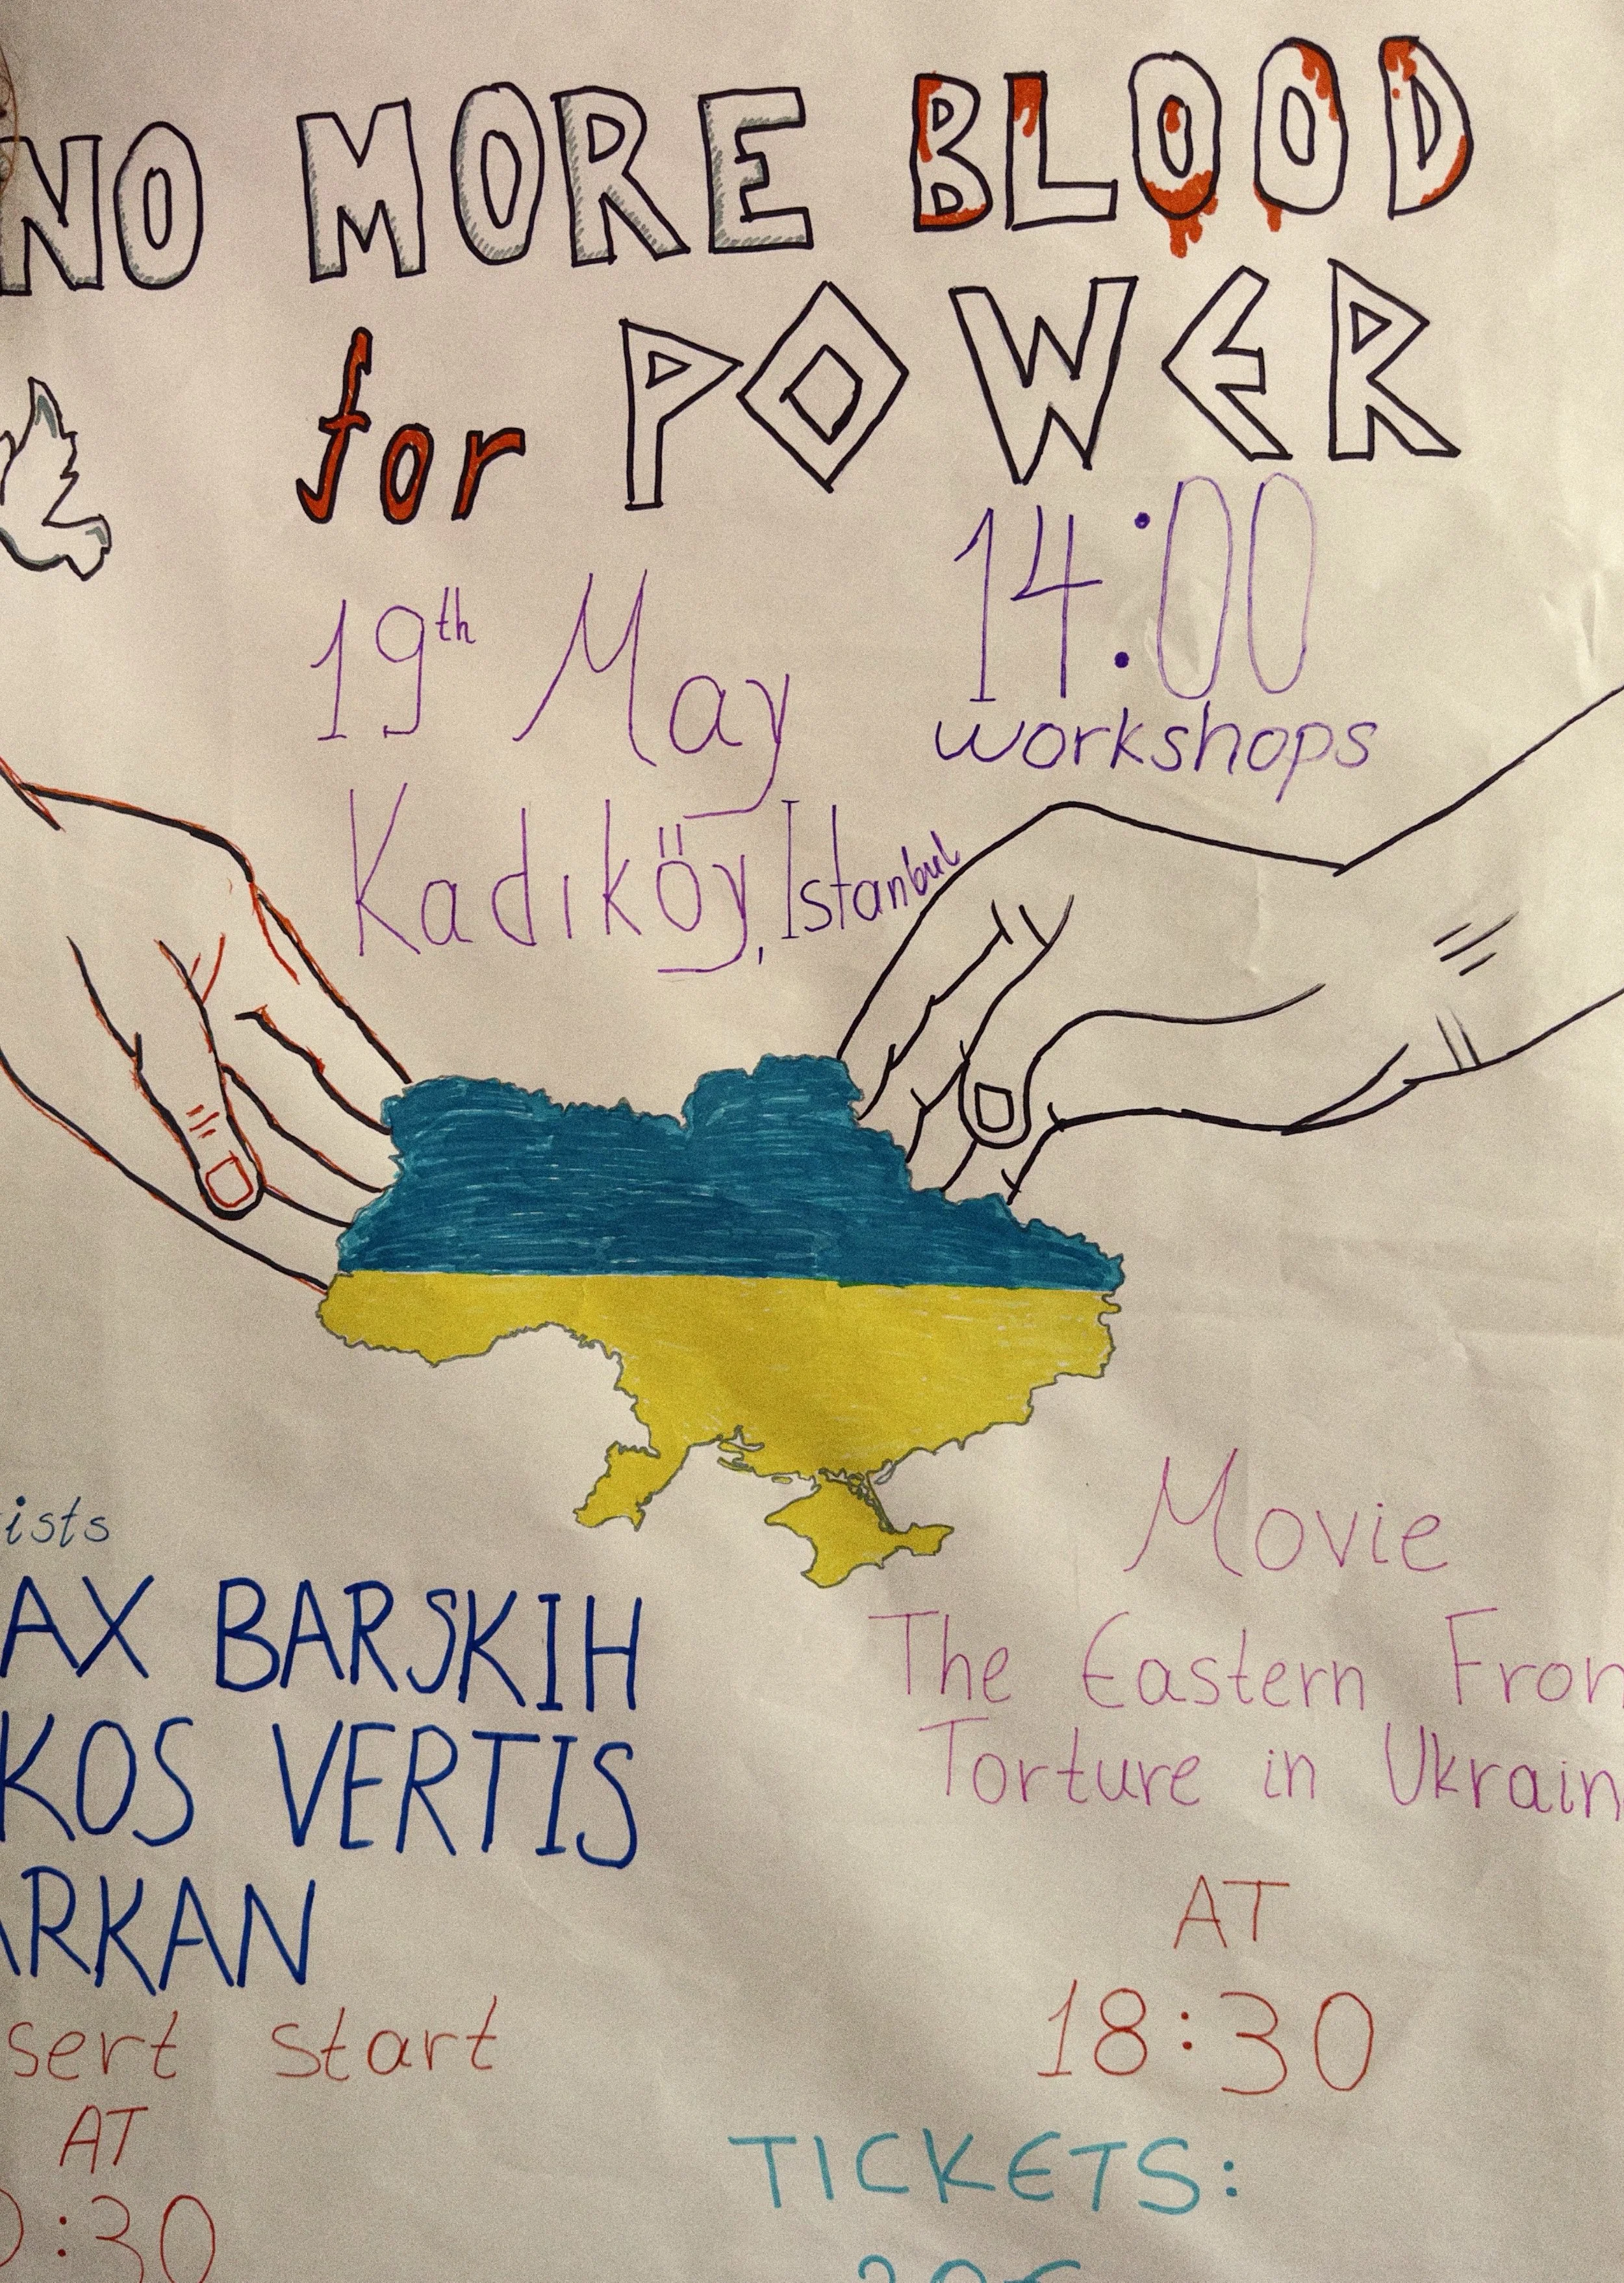 NO MORE BLOOD
for POWER
14:00
workshops
19th May
Kadıköy, Istanbul
ists
AX BARSKIH
KOS VERTIS
ARKAN
sert start
AT
:30
Movie
The Eastern Fron
Torture in Ukrain
AT
18:30
TICKETS: